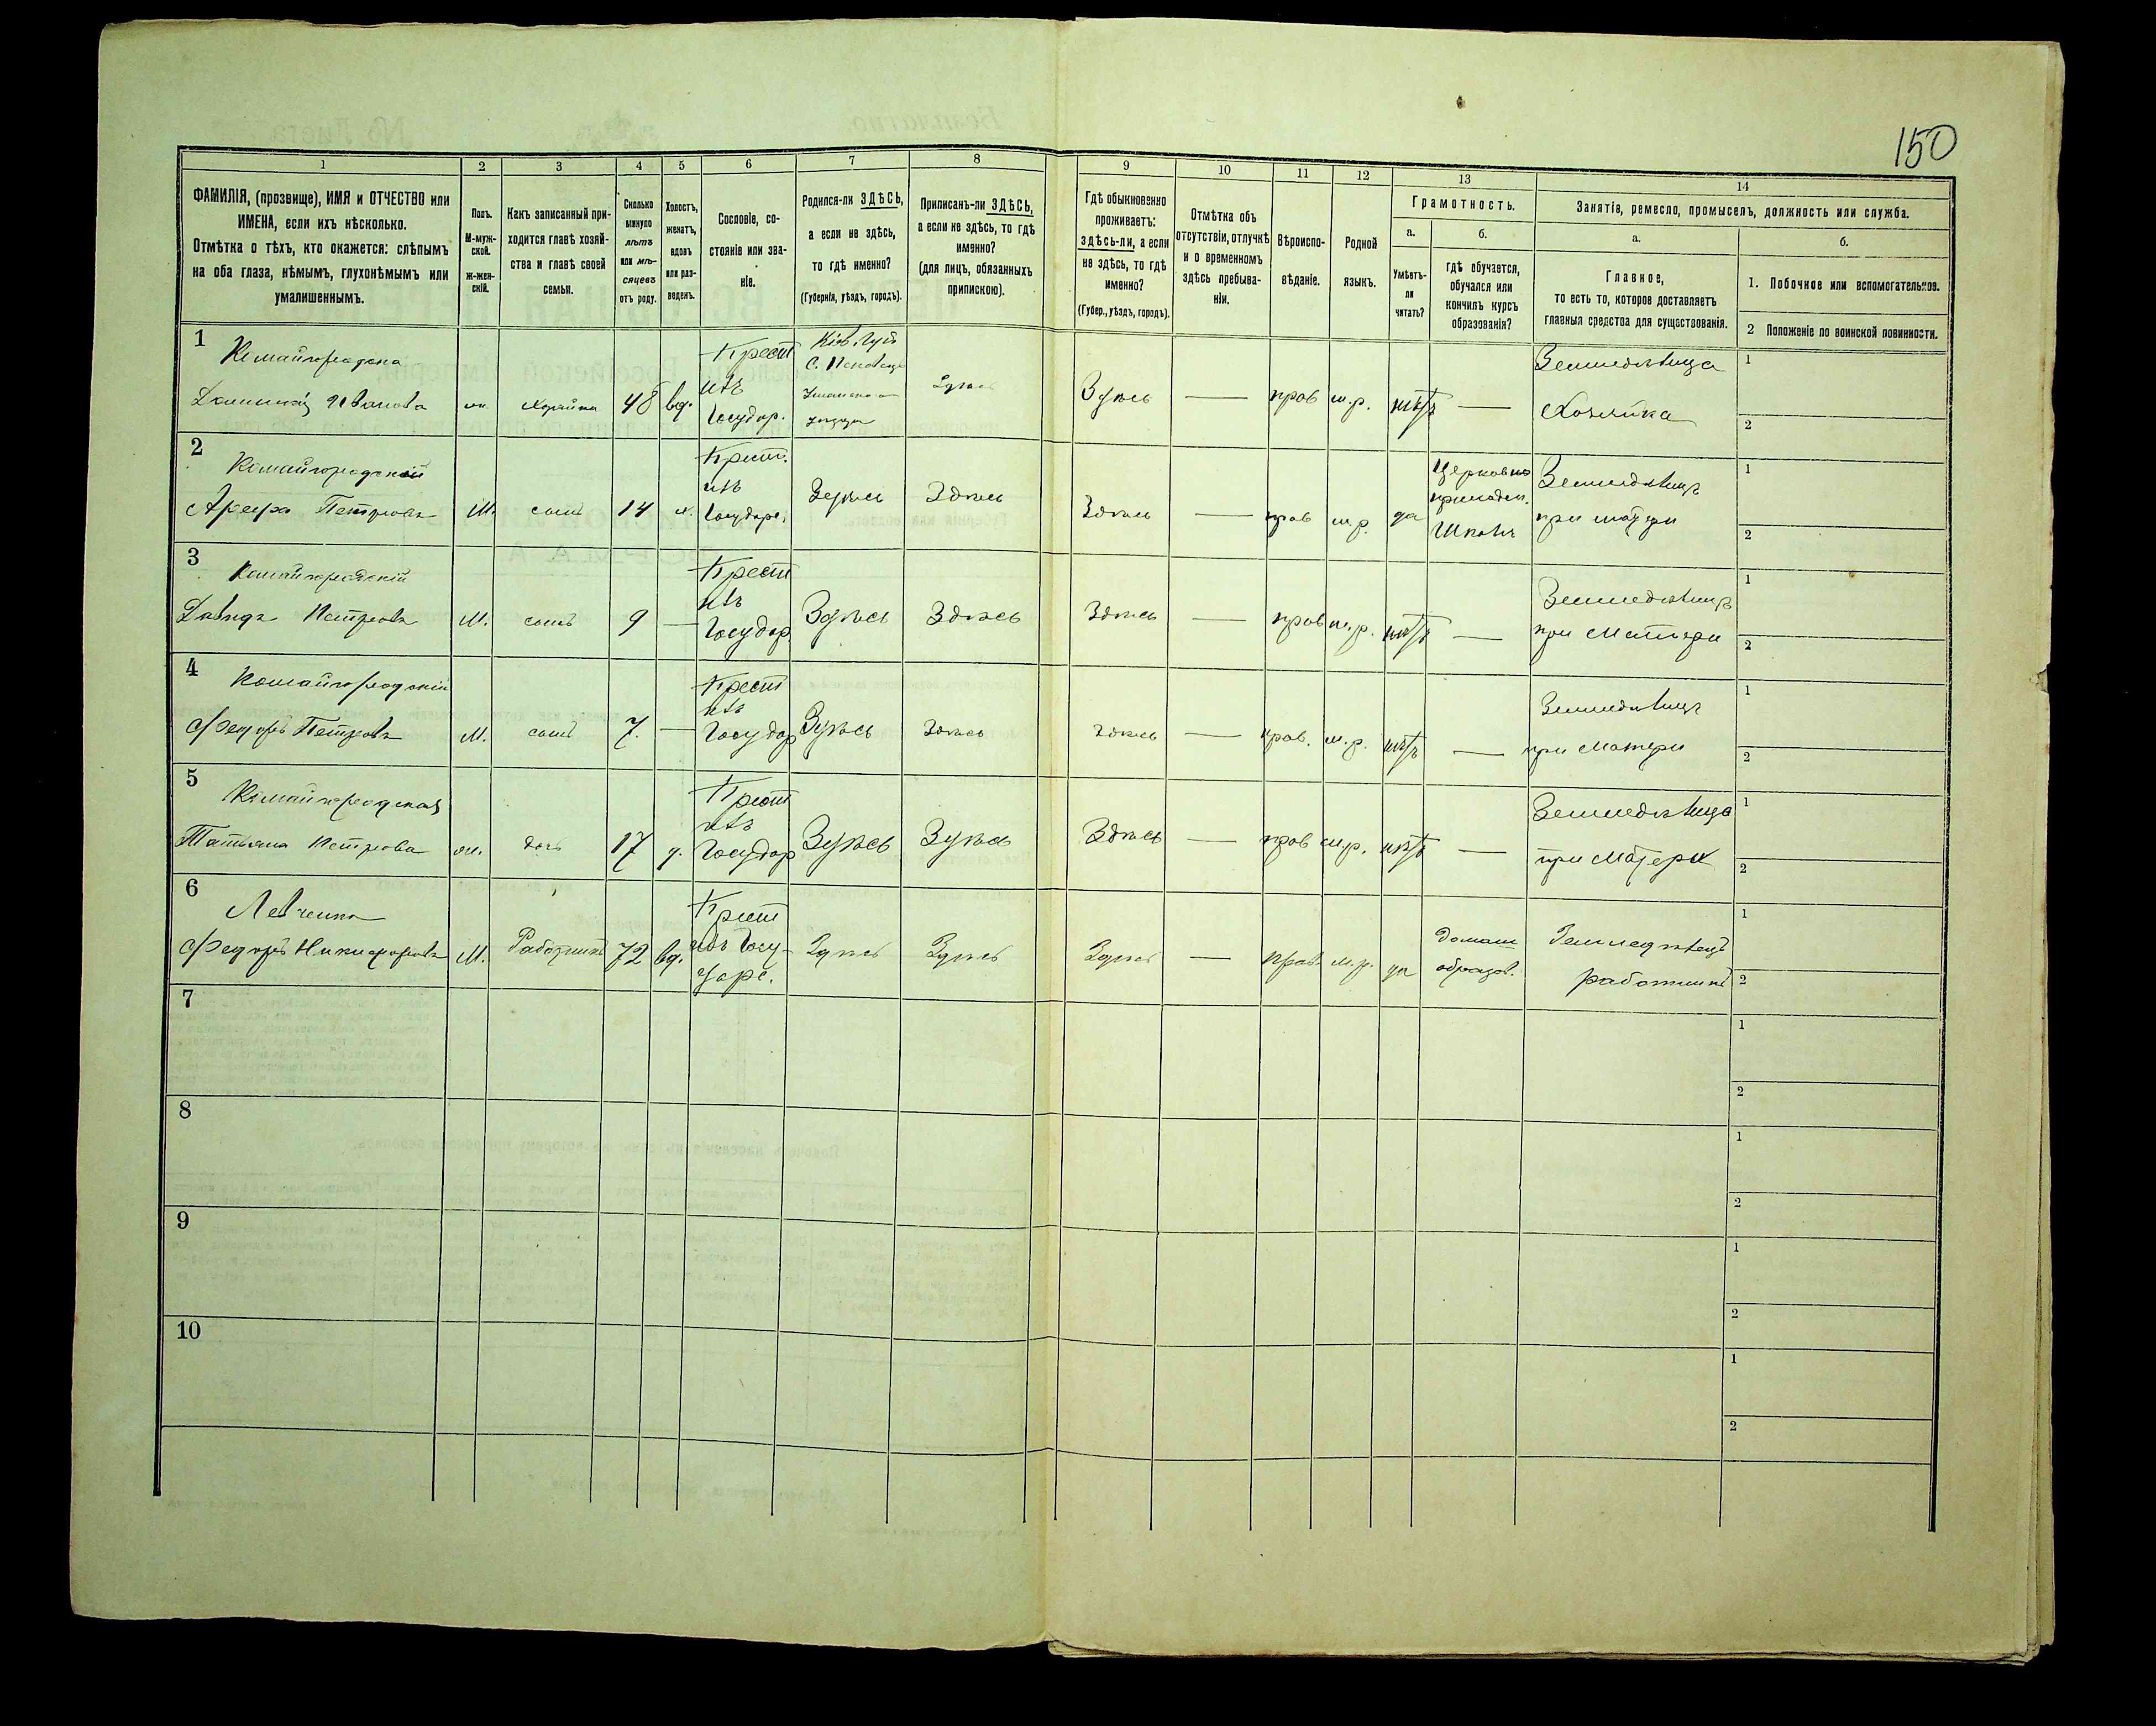 150
1 2 3 4 5 6 7 8 9 10 11 12 13 14
ФАМИЛІЯ, (прозвище), ИМЯ и ОТЧЕСТВО или
ИМЕНА, если ихъ нѣсколько.
Отмѣтка о тѣхъ, кто окажется: слѣпымъ
на оба глаза, нѣмымъ, глухонѣмымъ или
умалишеннымъ.
Полъ.
М-муж-
ской.
ж-жен-
скій.
Какъ записанный при-
ходится главѣ хозяй-
ства и главѣ своей
семьи.
Сколько
минуло
лѣтъ
или мѣ-
сяцевъ
отъ роду.
Холостъ,
женатъ,
вдовъ
или раз-
веденъ.
Сословіе, со-
стояніе или зва-
ніе.
Родился-ли ЗДѢСЬ,
а если не здѣсь,
то гдѣ именно?
(Губернія, уѣздъ, городъ).
Приписанъ-ли ЗДѢСЬ,
а если не здѣсь, то гдѣ
именно?
(для лицъ, обязанныхъ
припискою).
Гдѣ обыкновенно
проживаетъ:
здѣсь-ли, а если
не здѣсь, то гдѣ
именно?
(Губер., уѣздъ, городъ).
Отмѣтка объ
отсутствіи, отлучкѣ
и о временномъ
здѣсь пребыва-
ніи.
Вѣроиспо-
вѣданіе.
Родной
языкъ.
Грамотность.
а.
Умѣетъ-
ли
читать?
б.
гдѣ обучается,
обучался или
кончилъ курсъ
образованія?
Занятіе, ремесло, промыселъ, должность или служба.
а.
Главное,
то есть то, которое доставляетъ
главныя средства для существованія.
б.
1. Побочное или вспомогательное.
2 Положеніе по воинской повинности.
1
Иванова
ж. Хозяйка 48 вд.
Крест
изъ
Государ.
Кіев. Губ
С.
Уманскаго
уѣзда
Здѣсь
Здѣсь — прав м.р. нѣтъ —
Земледѣлица
Хозяйка
1
2
2
Комайгородскій
Петровъ М. сынъ 14 х.
Крест.
изъ
Государс.
Здѣсь Здѣсь
Здѣсь — прав м.р. да
Церковно
приходск.
Школѣ
Земледѣлецъ
при матери
1
2
3
Комайгородскій
Давидъ Петровъ М. сынъ 9 —
Крест
изъ
Государ.
Здѣсь Здѣсь
Здѣсь — прав м.р. нѣтъ —
Земледѣлецъ
при Матери
1
2
4
Комайгородскій
Федоръ Петровъ М. сынъ 7. —
Крест
изъ
Государ
Здѣсь Здѣсь
Здѣсь — прав. м.р. нѣтъ —
Земледѣлецъ
при Матери
1
2
5
Комайгородская
Татьяна Петрова ж. дочь 17 д.
Крест
изъ
Государ
Здѣсь Здѣсь
Здѣсь — прав м.р. нѣтъ —
Земледѣлица
при Матери
1
2
6
Левченко
Федоръ Никифоровъ М. Работникъ 72 вд.
Крест
изъ Госу-
дарс.
Здѣсь Здѣсь
Здѣсь — прав. м.р. да
домаш
образов.
Земледѣлецъ
работникъ
1
2
7
1
2
8
1
2
9
1
2
10
1
2